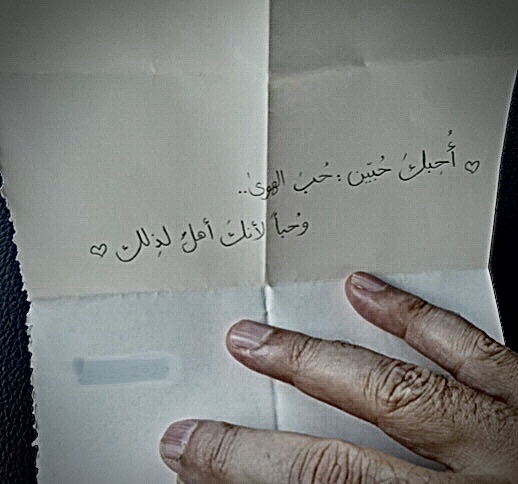 أُحِبكَ حُبّين : حُبَ الهوىٰ..
وَحُباً لأنكَ أهلٌ لذِلك